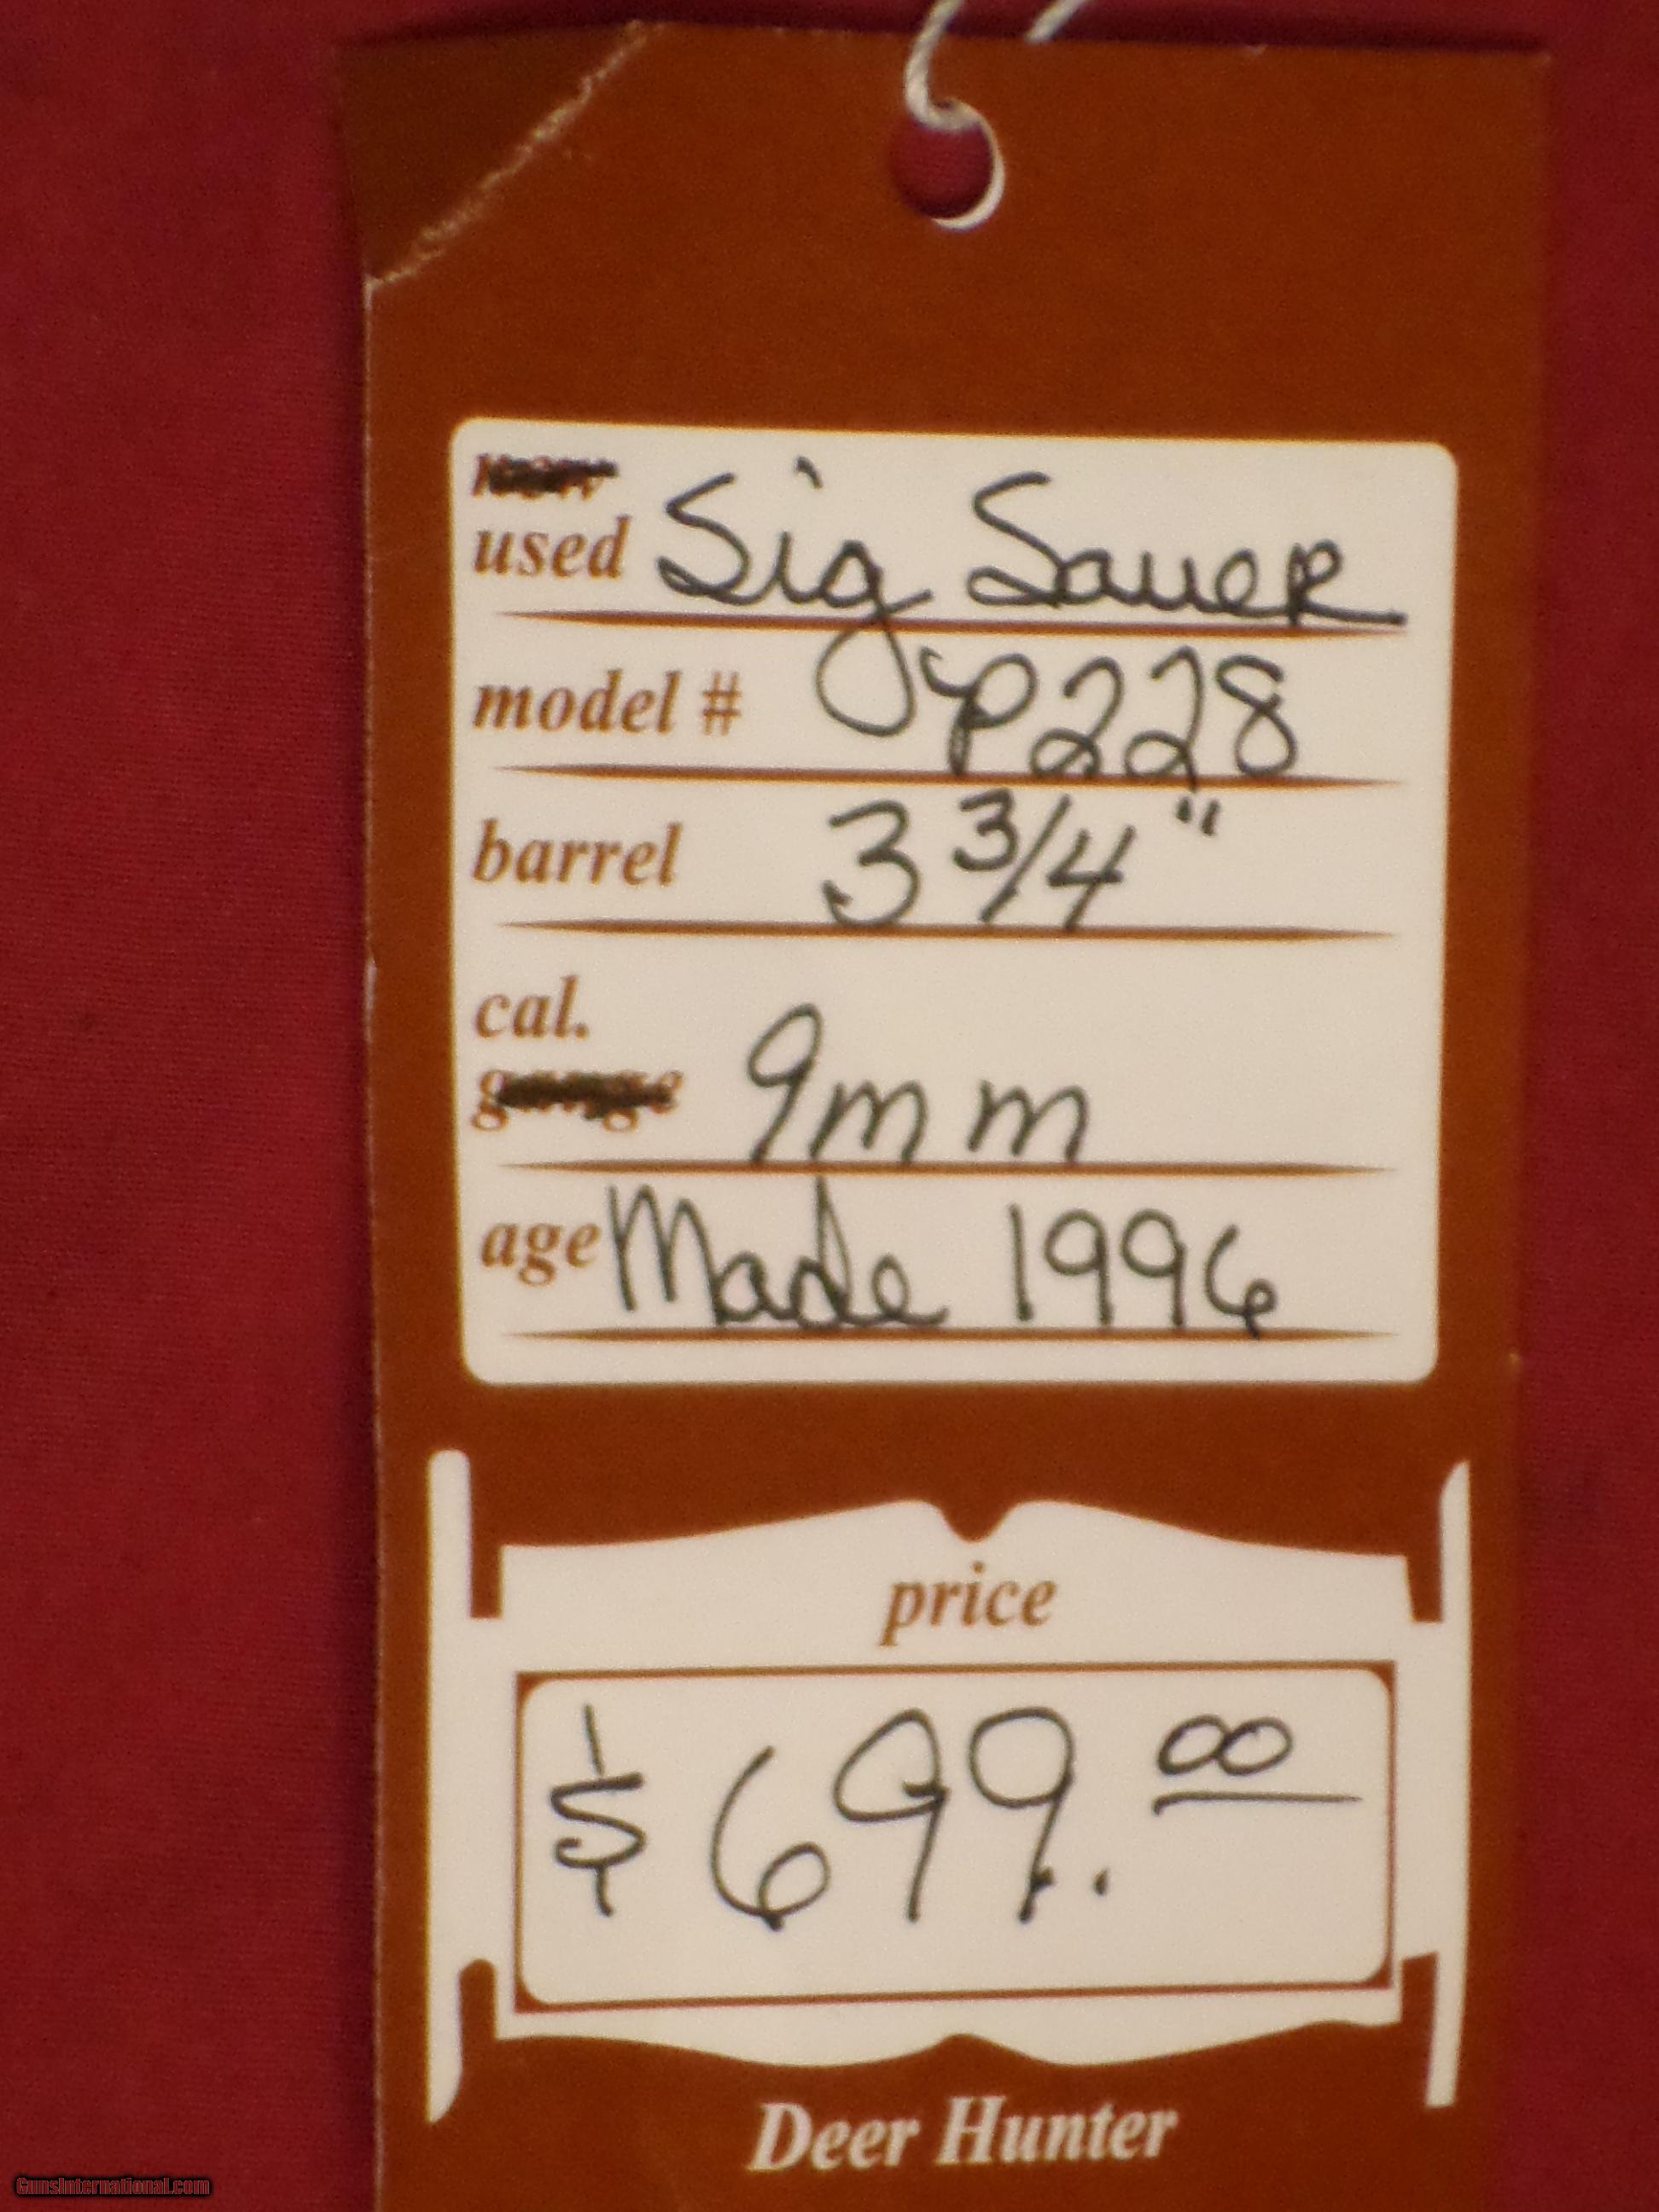 new
used Sig Sauer
model # P228
barrel 3 3/4"
cal.
gauge 9mm
age Made 1996
price
$699.00
Deer Hunter
GunsInternational.com